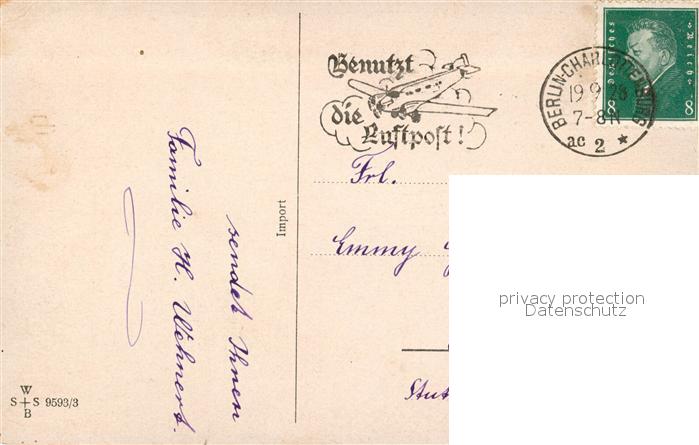 Benutzt
die
Luftpost!
BERLIN-CHARLOTTENBURG
19.9.28
7-8N
ac 2 *
Deutsches Reich
8 8
Frl.
Emmy
Stut
sendet Ihnen
Familie H. Wehnert.
Import
W
S + S 9593/3
B
privacy protection
Datenschutz